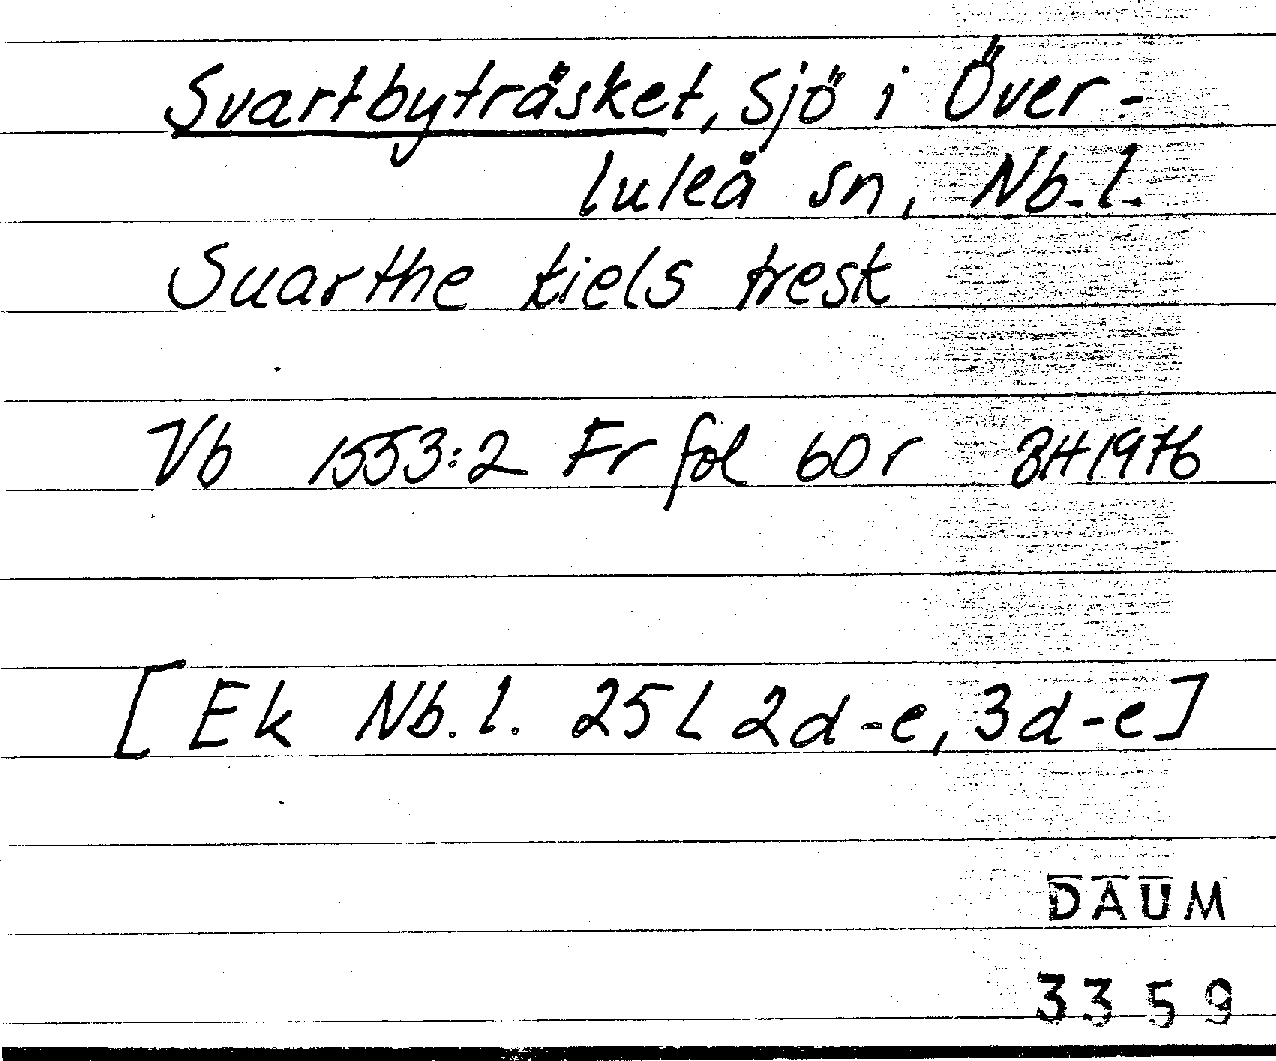 Svartbyträsket, sjö i Över-
luleå sn, Nb.l.
Suarthe tiels tresk
Vb 1553:2 Fr fol 60r BH1976
[Ek Nb.l. 25L 2d-e, 3d-e]
DAUM
3359